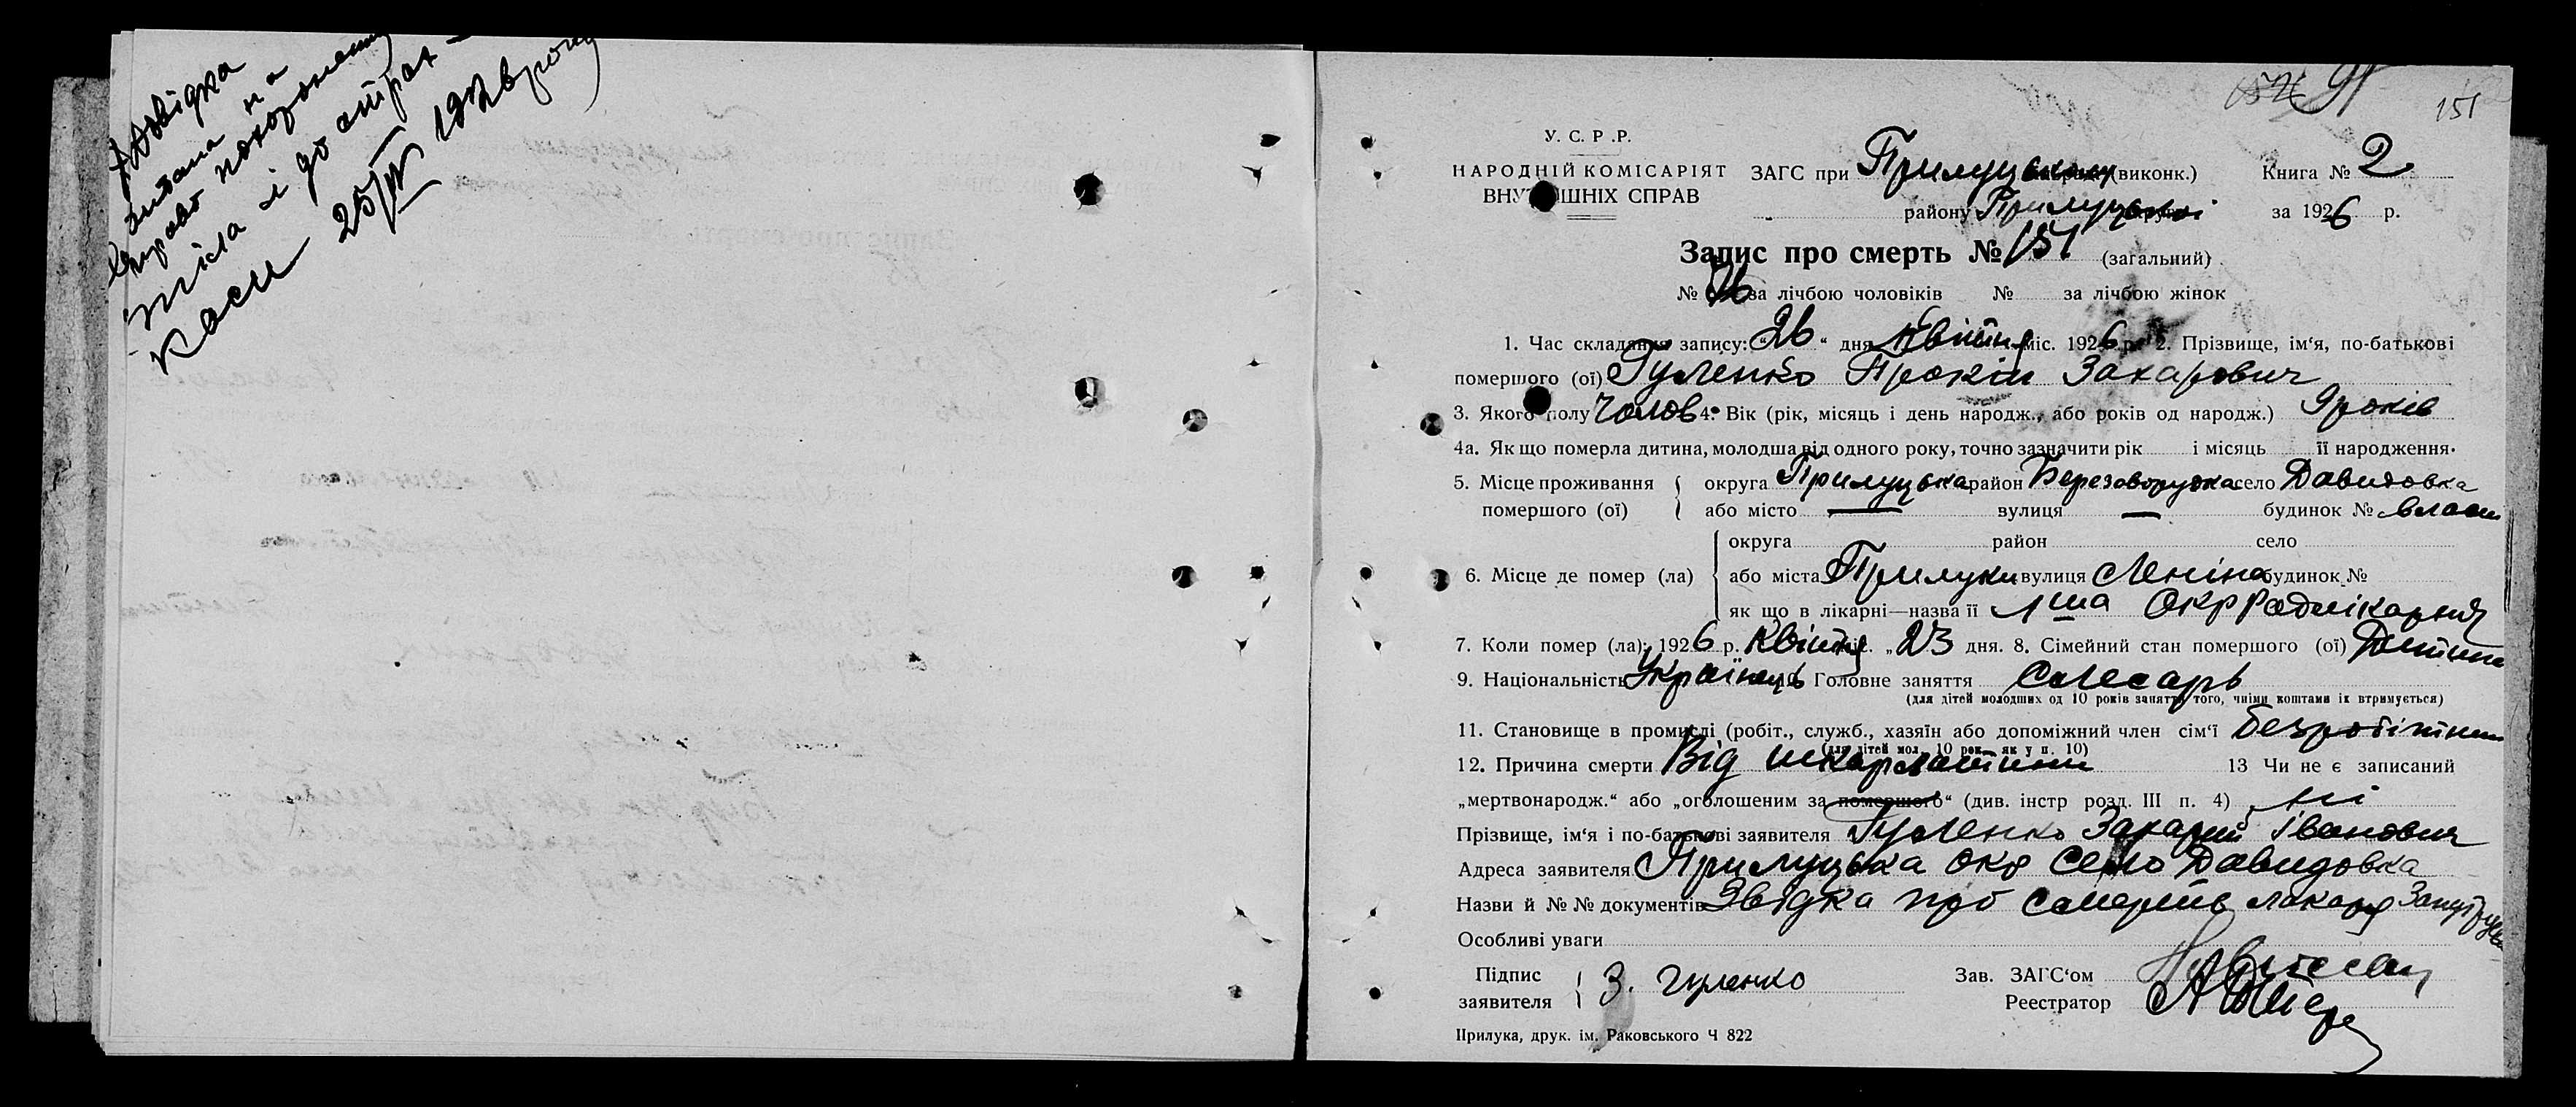 Довідка
видана на
право похорону
тіла і до страх
каси 25/IV 1926 року
91
151
У. С. Р. Р.
НАРОДНІЙ КОМІСАРІЯТ
ВНУТРІШНІХ СПРАВ
ЗАГС при Прилуцьком (виконк.) Книга № 2
району Прилуцької за 1926 р.
Запис про смерть № 151 (загальний)
№ 76 за лічбою чоловіків № за лічбою жінок
1. Час складання запису: „26“ дня Квітня міс. 1926 р. 2. Прізвище, ім‘я, по-батькові
помершого (ої) Гуленко Прокіп Захарович
3. Якого полу Чолов 4. Вік (рік, місяць і день народж., або років од народж.) 9 років
4а. Як що померла дитина, молодша від одного року, точно зазначити рік і місяць її народження.
5. Місце проживання помершого (ої) округа Прилуцька район Березоворудка село Давидовка
або місто — вулиця — будинок № власн
округа район село
6. Місце де помер (ла) або міста Прилуки вулиця Леніна будинок №
як що в лікарні—назва її 1ша Окррадлікарня
7. Коли помер (ла): 1926 р. Квітня міс. „23 дня. 8. Сімейний стан помершого (ої) Дитина
9. Національність Українець Головне заняття Слесарь
(для дітей молодших од 10 років заняття того, чиїми коштами їх втримується)
11. Становище в промислі (робіт., служб., хазяїн або допоміжний член сім‘ї безробітний
(для дітей мол. 10 рок. як у п. 10)
12. Причина смерти Від шкарлатини 13 Чи не є записаний
„мертвонародж.“ або „оголошеним за помершого“ (див. інстр розд. III п. 4) ні
Прізвище, ім‘я і по-батькові заявителя Гуленко Захарий Іванович
Адреса заявителя Прилуцька окр село Давидовка
Назви й №№ документів Звідка про смерть лікаря
Особливі уваги
Підпис заявителя З. Гуленко
Зав. ЗАГС‘ом
Реестратор
Прилука, друк. ім. Раковського Ч 822